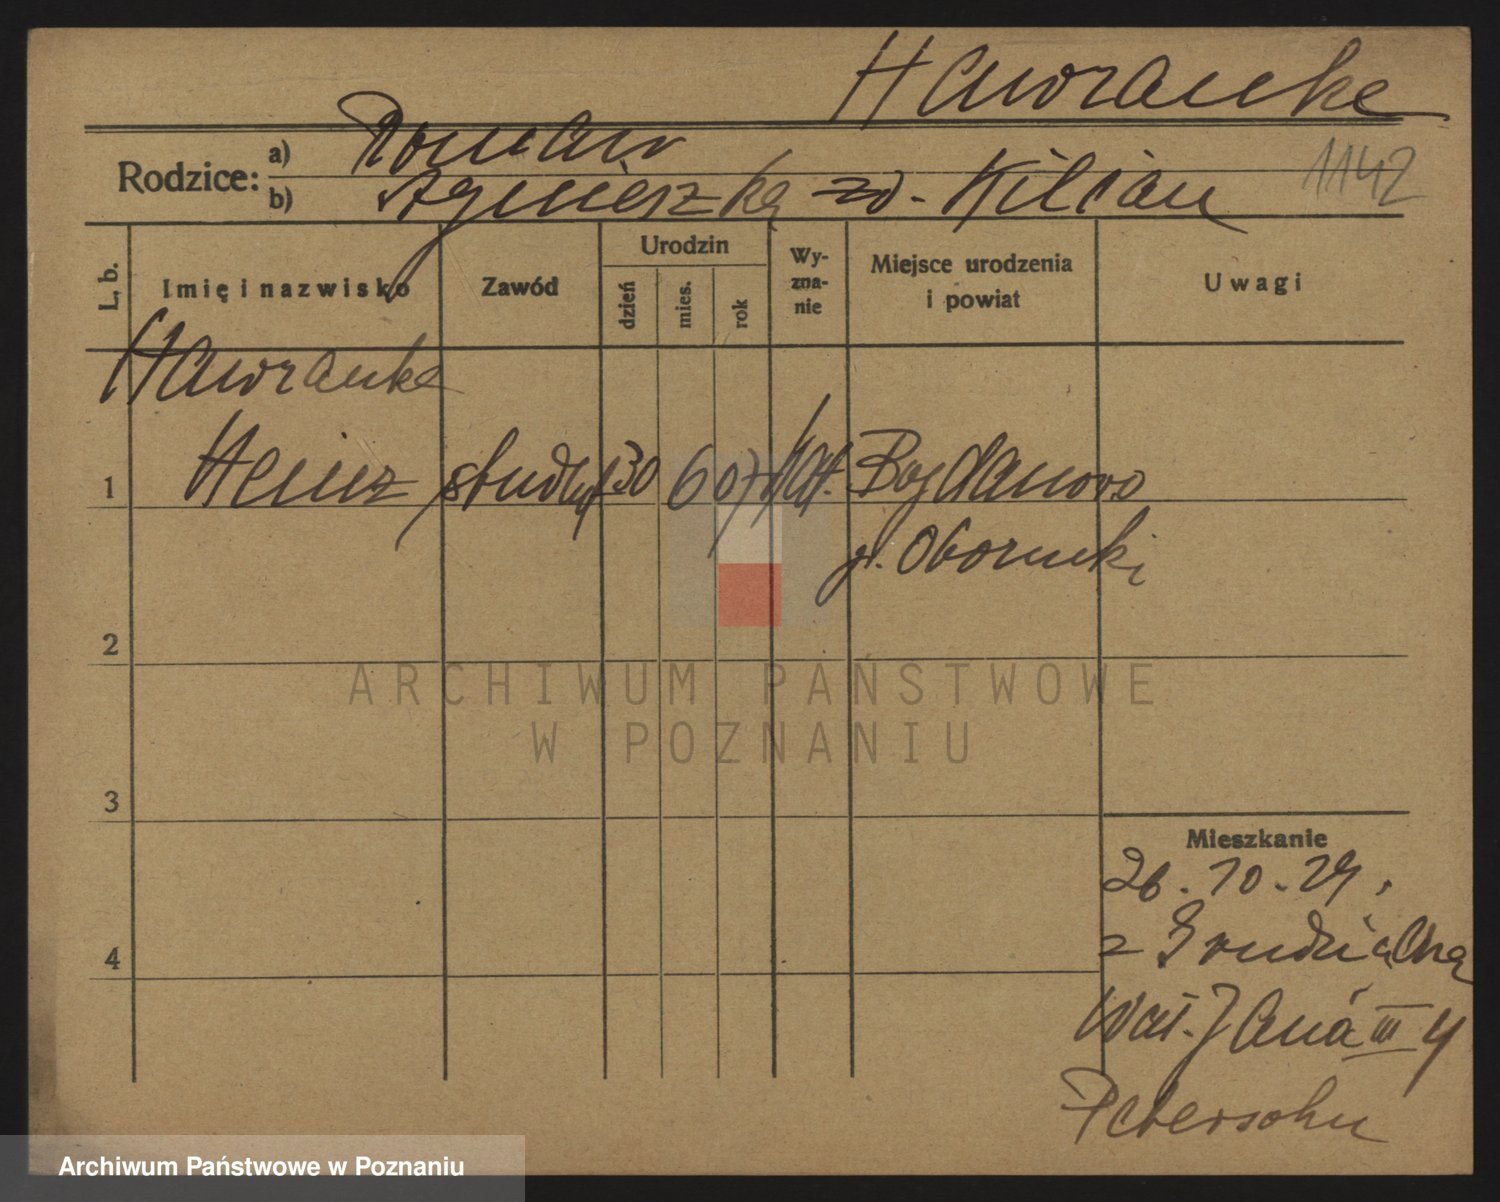 Hawranke
Rodzice:
a) Roman
b) Agnieszka zd. Kilian
1142
L. b.
Imię i nazwisko
Zawód
Urodzin
dzień
mies.
rok
Wy-
zna-
nie
Miejsce urodzenia
i powiat
Uwagi
Hawranke
1 Heinz 30 6 07 kat. Bogdanowo
p. Oborniki
2
3
4
Mieszkanie
26.10.29.
z Grudziądza
Wał. Jana III 4
Petersohn
ARCHIWUM PAŃSTWOWE
W POZNANIU
Archiwum Państwowe w Poznaniu